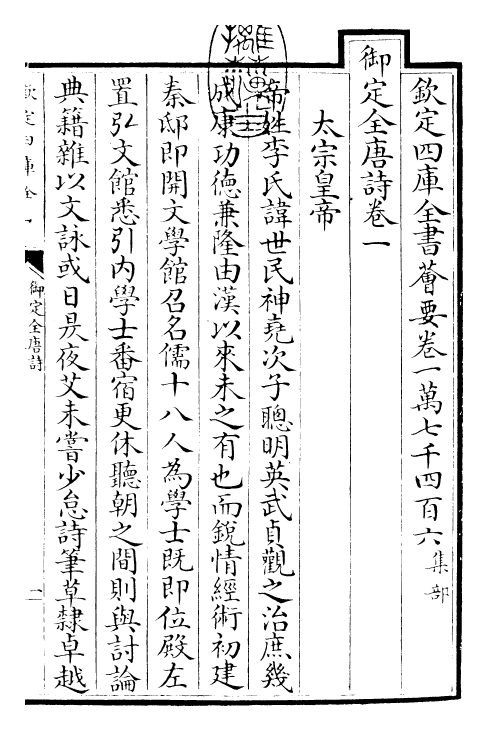 欽定四庫全書薈要卷一萬七千四百六集部
御定全唐詩卷一
太宗皇帝
帝姓李氏諱世民神堯次子聰明英武貞觀之治庶幾
成康功徳兼隆由漢以來未之有也而鋭情經術初建
秦邸即開文學館召名儒十八人為學士既即位殿左
置弘文館悉引内學士番宿更休聽朝之間則與討論
典籍雜以文詠或日昃夜艾未嘗少怠詩筆草隸卓越
御定全唐詩
一